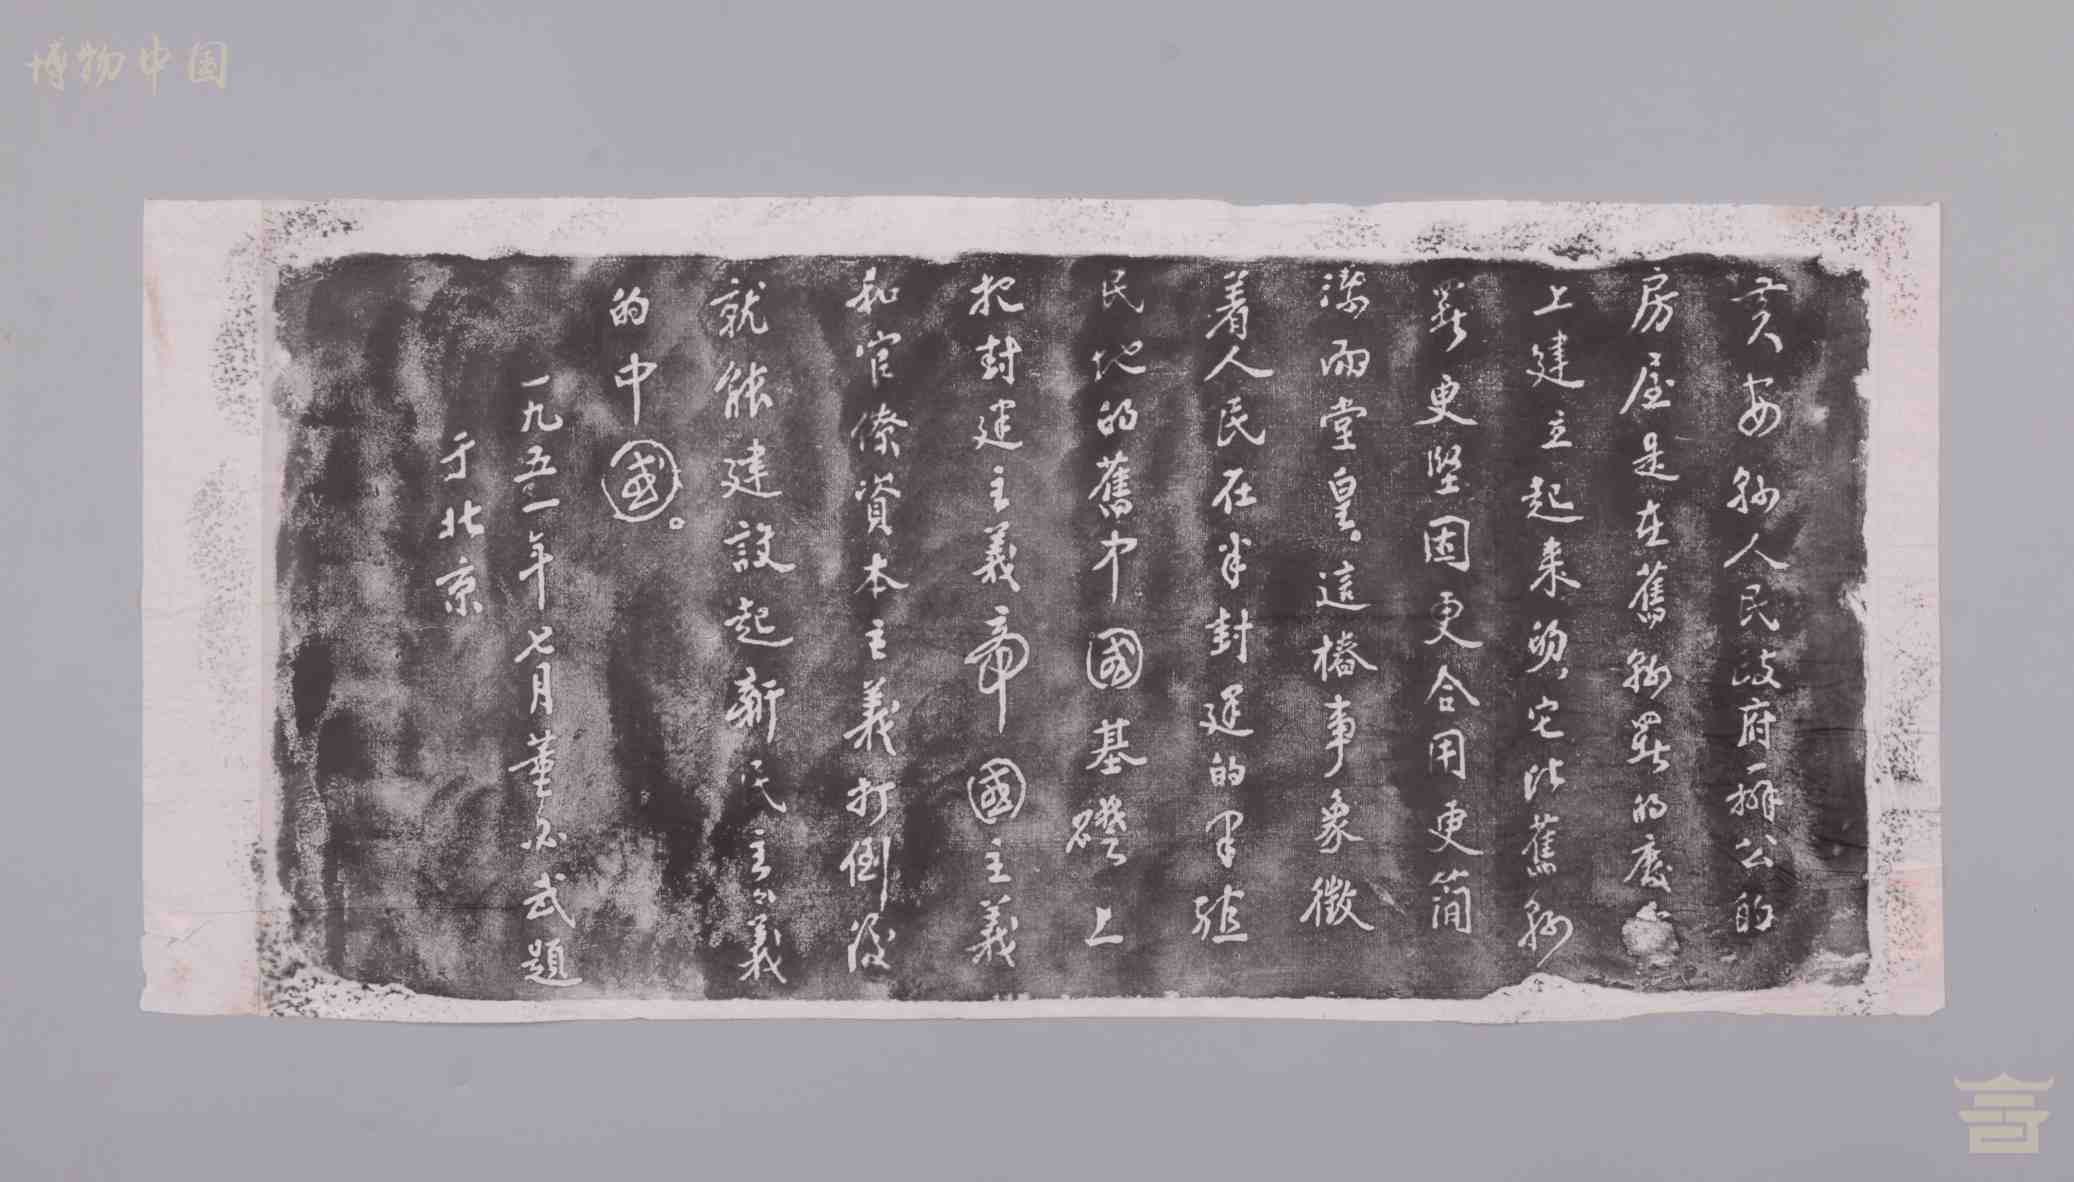 博物中国
黄安縣人民政府辦公的
房屋是在舊縣署的廢
上建立起来的，它比舊縣
署更堅固更合用更簡
潔而堂皇。這樁事象徵
着人民在半封建的半殖
民地的舊中國基礎上
把封建主義帝國主義
和官僚資本主義打倒後
就能建設起新民主主義
的中國。
一九五一年七月董必武題
于北京